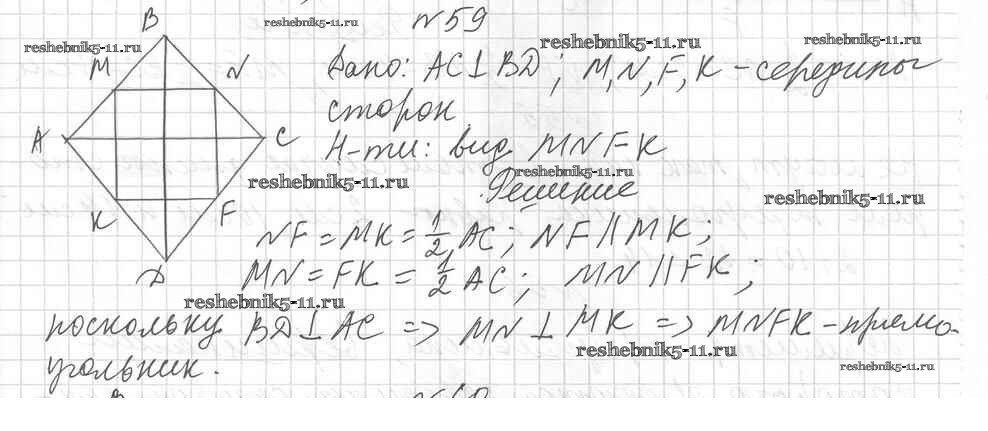 N59
reshebnik5-11.ru
B
reshebnik5-11.ru
reshebnik5-11.ru
reshebnik5-11.ru
M
N
Дано: AC⊥BD; M,N,F,K – середины
сторон
A
C
Н-ти: вид MNFK
reshebnik5-11.ru
reshebnik5-11.ru
Решение
reshebnik5-11.ru
K
F
NF = MK = 1/2 AC; NF || MK;
D
MN = FK = 1/2 AC; MN || FK;
reshebnik5-11.ru
поскольку BD⊥AC => MN⊥MK => MNFK – прямо-
reshebnik5-11.ru
угольник.
reshebnik5-11.ru